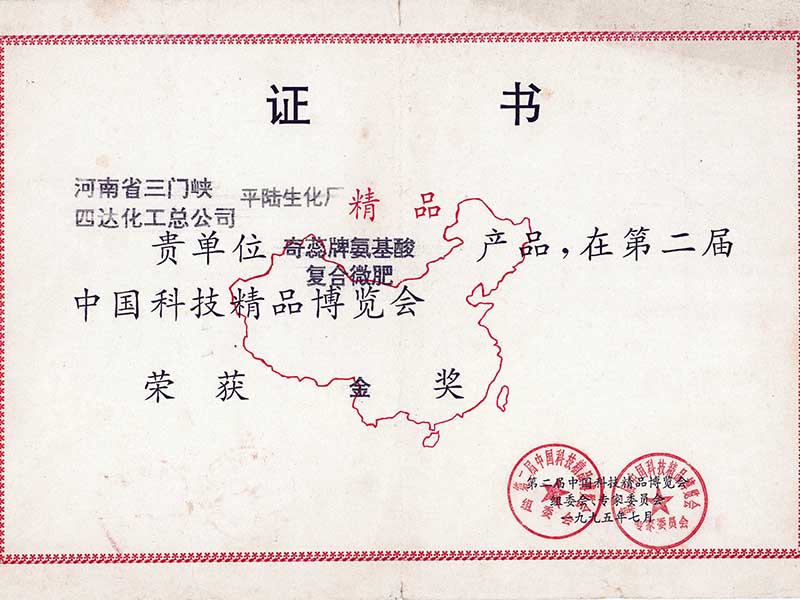 证书
河南省三门峡
四达化工总公司
平陆生化厂
精品
贵单位 奇蕊牌氨基酸 产品，在第二届
复合微肥
中国科技精品博览会
荣获 金 奖
第二届中国科技精品博览会
组委会、专家委员会
一九九五年七月
第二届中国科技精品博览会
组委会
第二届中国科技精品博览会
专家委员会